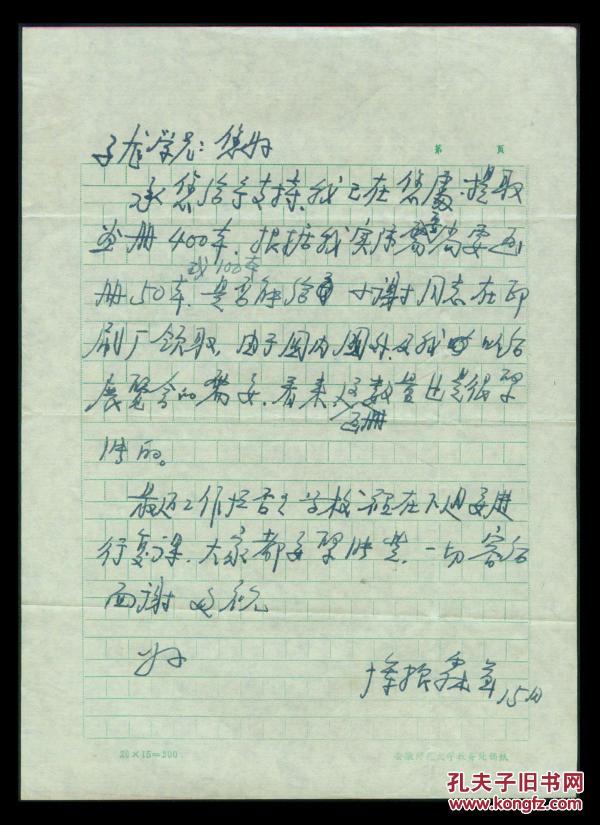 第 页
子龙学兄：您好
承您给予支持，我已在您处提取
画册400本，根据我实际需尚要画
或100本
册50本，是否能给 小谢同志在印
刷厂领取，由于国内国外及我 以后
展览会的需要，看来这数量也是很紧
画册
张的。
最近工作忙否？学校 在下週要进
行复课，大家都要紧张些，一切容后
面谢 此祝
好
振霖 15日
20×15=300
安徽师范大学教务处稿纸
孔夫子旧书网
www.kongfz.com